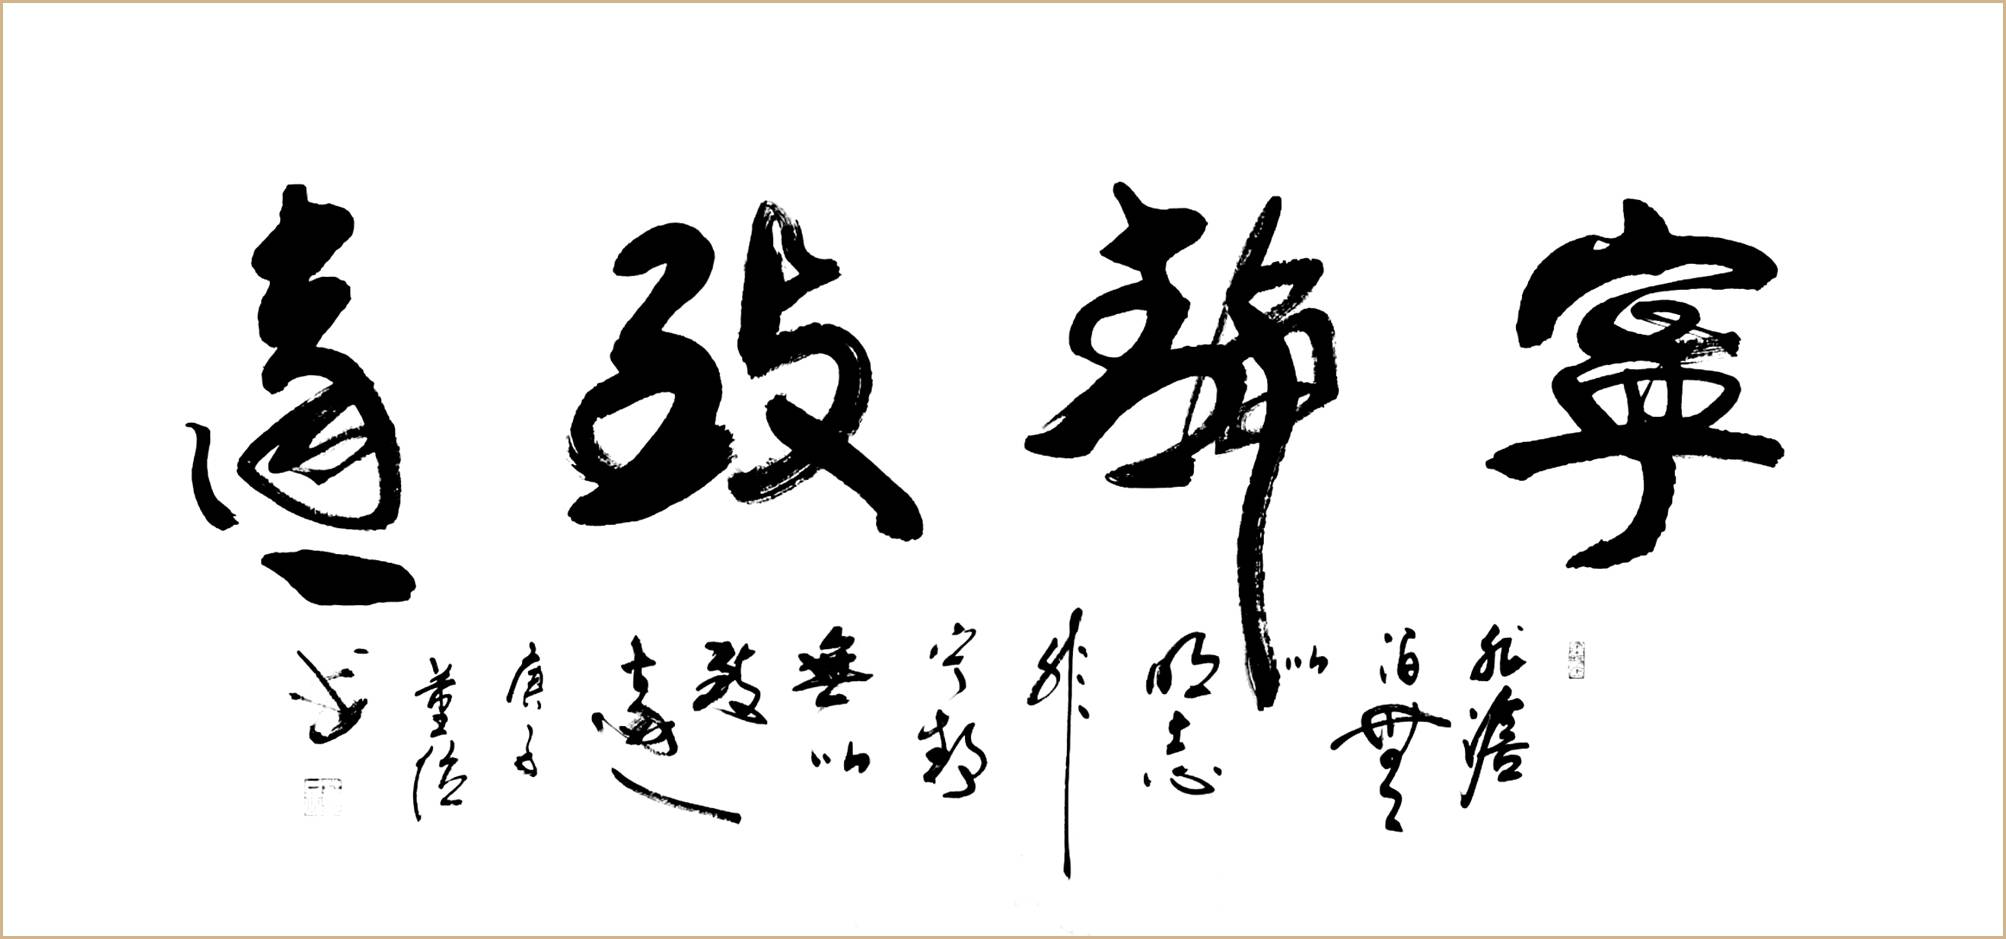 寧靜致遠
非澹
泊無
以
明志
非
寧靜
無以
致
遠
庚子
董
書